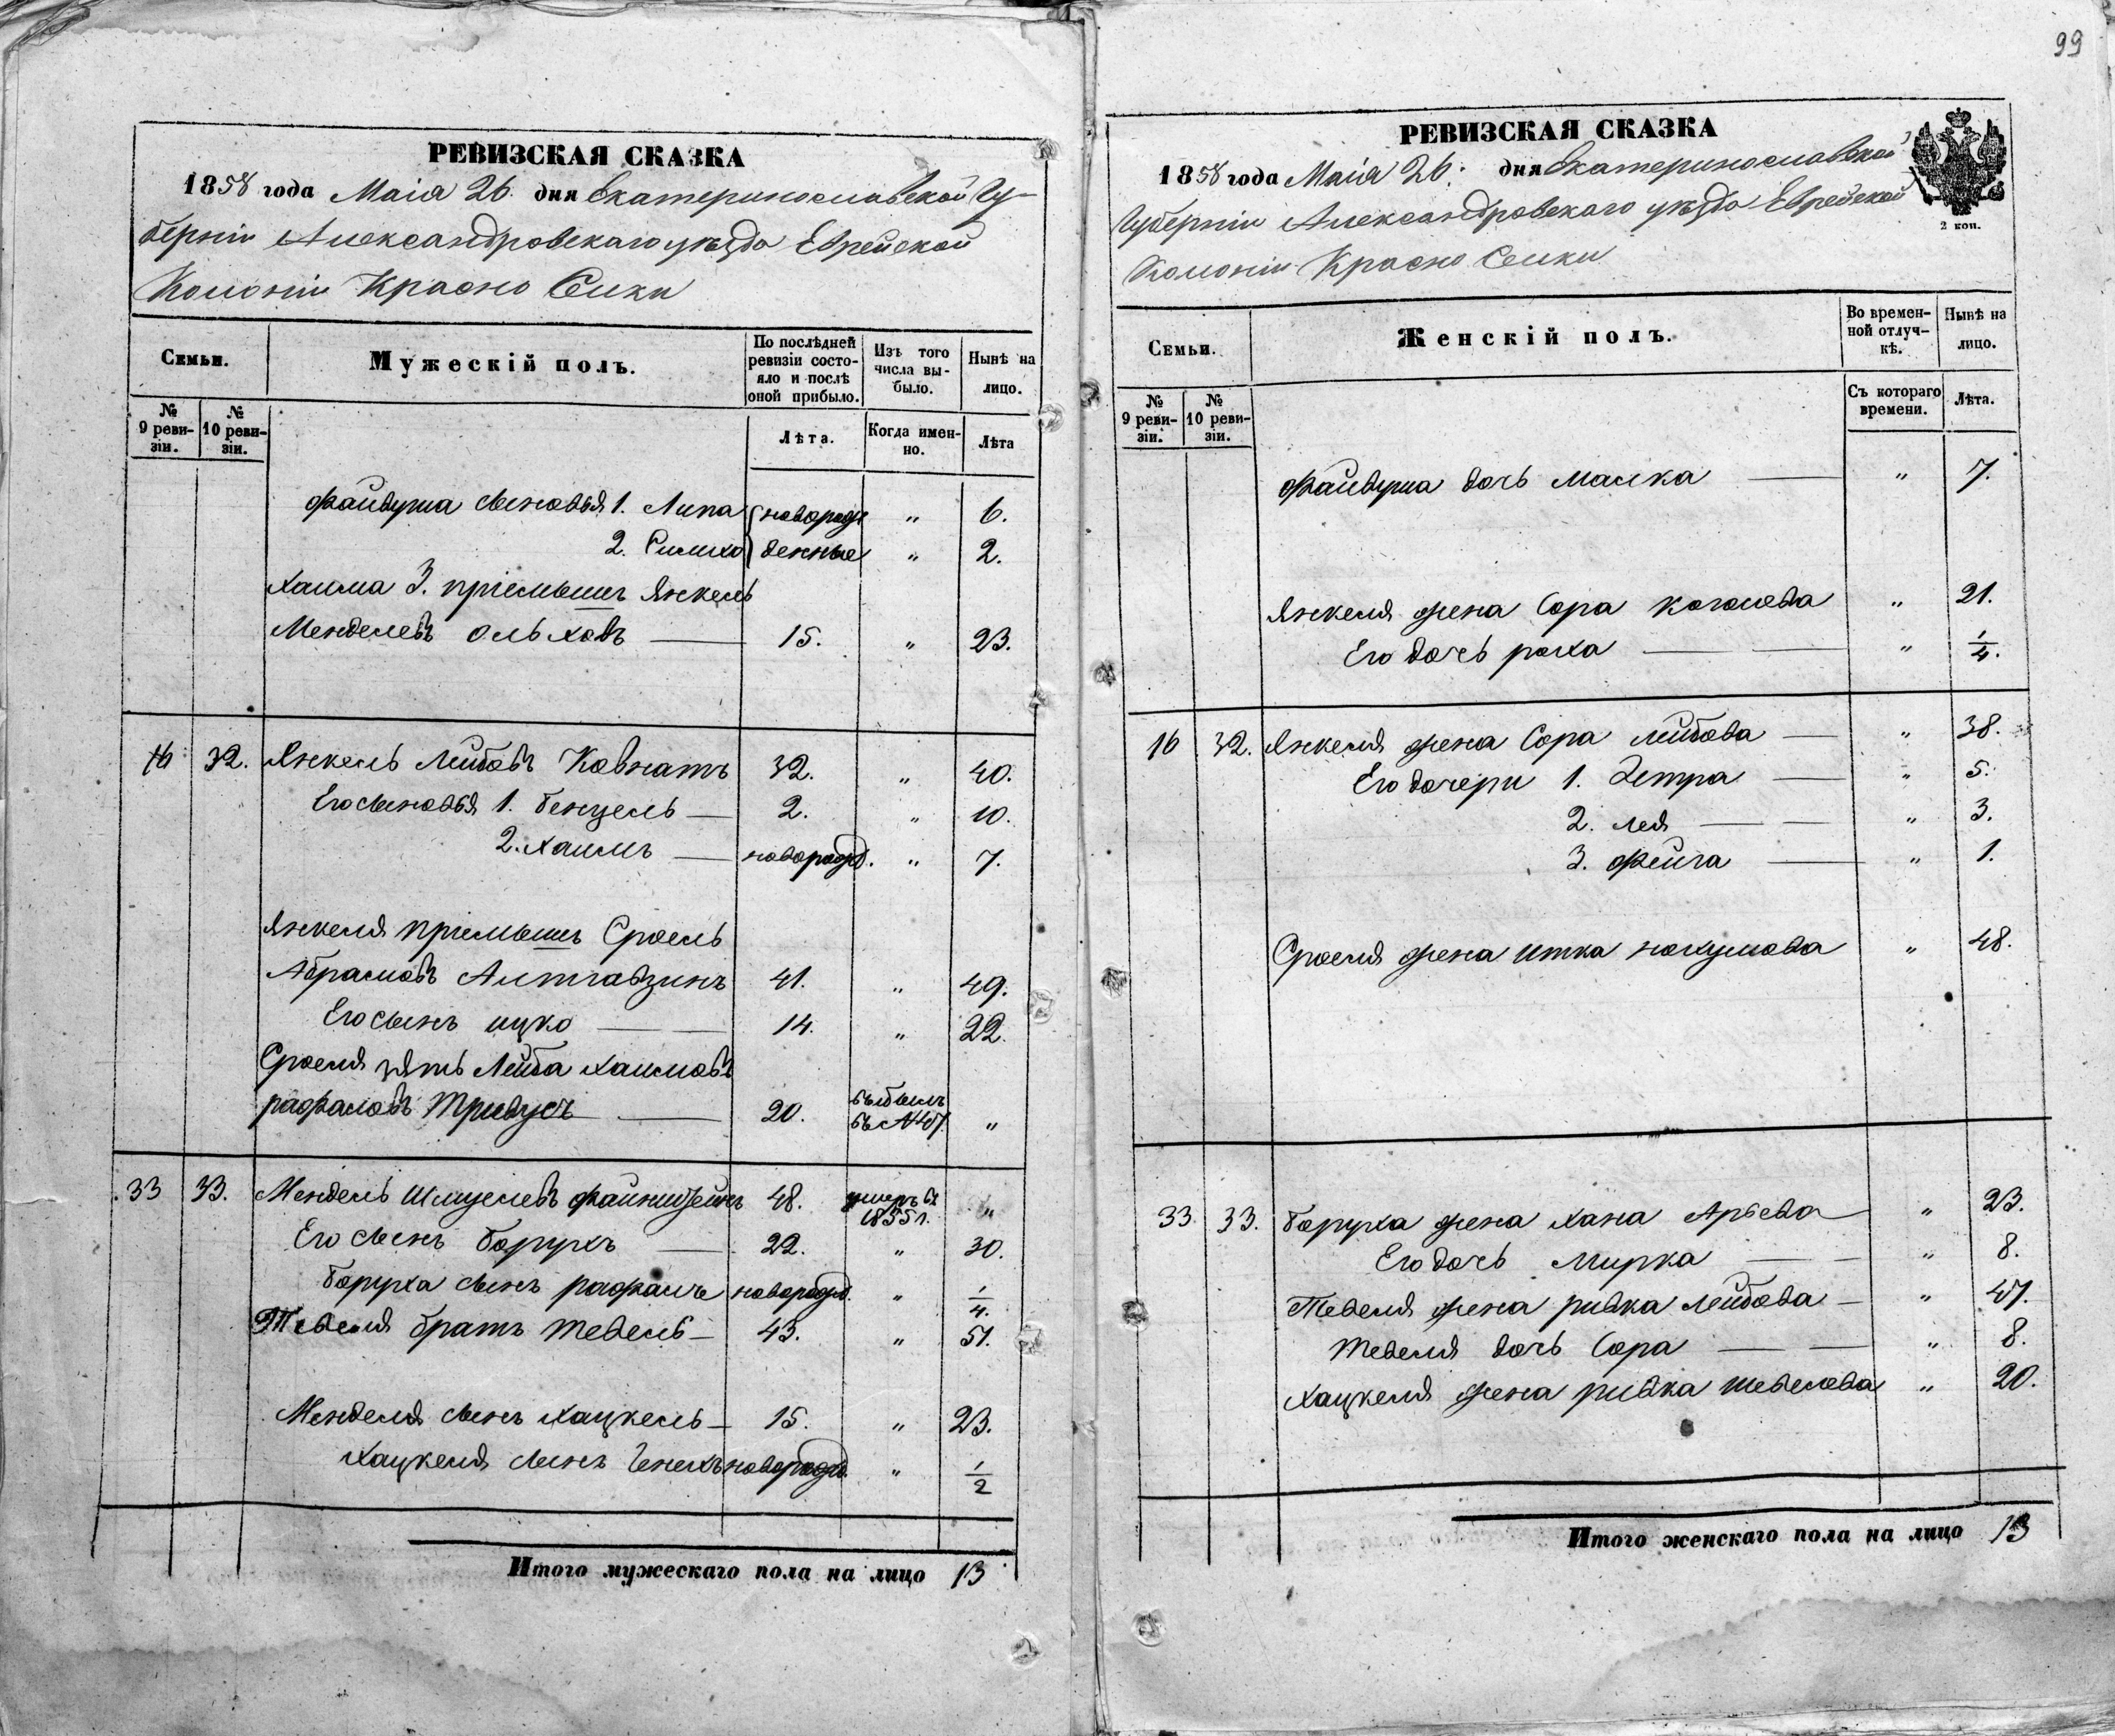 99
РЕВИЗСКАЯ СКАЗКА
1858 года Маія 26. дня Екатеринославской Гу-
берніи Александровскаго уѣзда Еврейской
Колоніи Красно Селки
Семьи.
Мужескій полъ.
По послѣдней ревизіи состо-яло и послѣ оной прибыло.
Изъ того числа вы-было.
Нынѣ на лицо.
№ 9 реви-зіи.
№ 10 реви-зіи.
Лѣта.
Когда имен-но.
Лѣта
Файвуша сыновья 1. Липа новорож 〃 6.
2. Симхо денные 〃 2.
Хаима 3. пріемышъ Янкель
Менделевъ Ольховъ 15. 〃 23.
16 32. Янкель Лейбовъ Ковнатъ 32. 〃 40.
Его сыновья 1. Бенцель 2. 〃 10.
2. Хаимъ новорожд. 〃 7.
Янкеля пріемышъ Сроель
Абрамовъ 41. 〃 49.
Его сынъ Ицко 14. 〃 22.
Сроеля зять Лейба Хаимовъ
Рафаловъ Тривусъ 20. 〃
33 33. Мендель Шмуелевъ Файнштейнъ 48. умеръ въ 1855 г. 〃
Его сынъ Борухъ 22. 〃 30.
Боруха сынъ Рафаилъ новорожд. 〃 1/4.
братъ Тевель 43. 〃 51.
Менделя сынъ Хацкель 15. 〃 23.
Хацкеля сынъ Генехъ новорожд. 〃 1/2
Итого мужескаго пола на лицо 13
РЕВИЗСКАЯ СКАЗКА
1858 года Маія 26. дня Екатеринославской
Губерніи Александровскаго уѣзда Еврейской
Колоніи Красно Селки
2 коп.
Семьи.
Женскій полъ.
Во времен-ной отлуч-кѣ.
Нынѣ на лицо.
№ 9 реви-зіи.
№ 10 реви-зіи.
Съ котораго времени.
Лѣта.
Файвуша дочь Малка 〃 7.
Янкеля жена Сора 〃 21.
Его дочь Роха 〃 1/4.
16 32. Янкеля жена Сора Лейбова 〃 38.
Его дочери 1. Зетра 〃 5.
2. Лея 〃 3.
3. Фейга 〃 1.
Сроеля жена Итка Нохумова 〃 48.
33. 33. Боруха жена Хана Арьева 〃 23.
Его дочь Мирка 〃 8.
Тевеля жена Ривка Лейбова 〃 47.
Тевеля дочь Сора 〃 8.
Хацкеля жена Ривка Шевелева 〃 20.
Итого женскаго пола на лицо 13